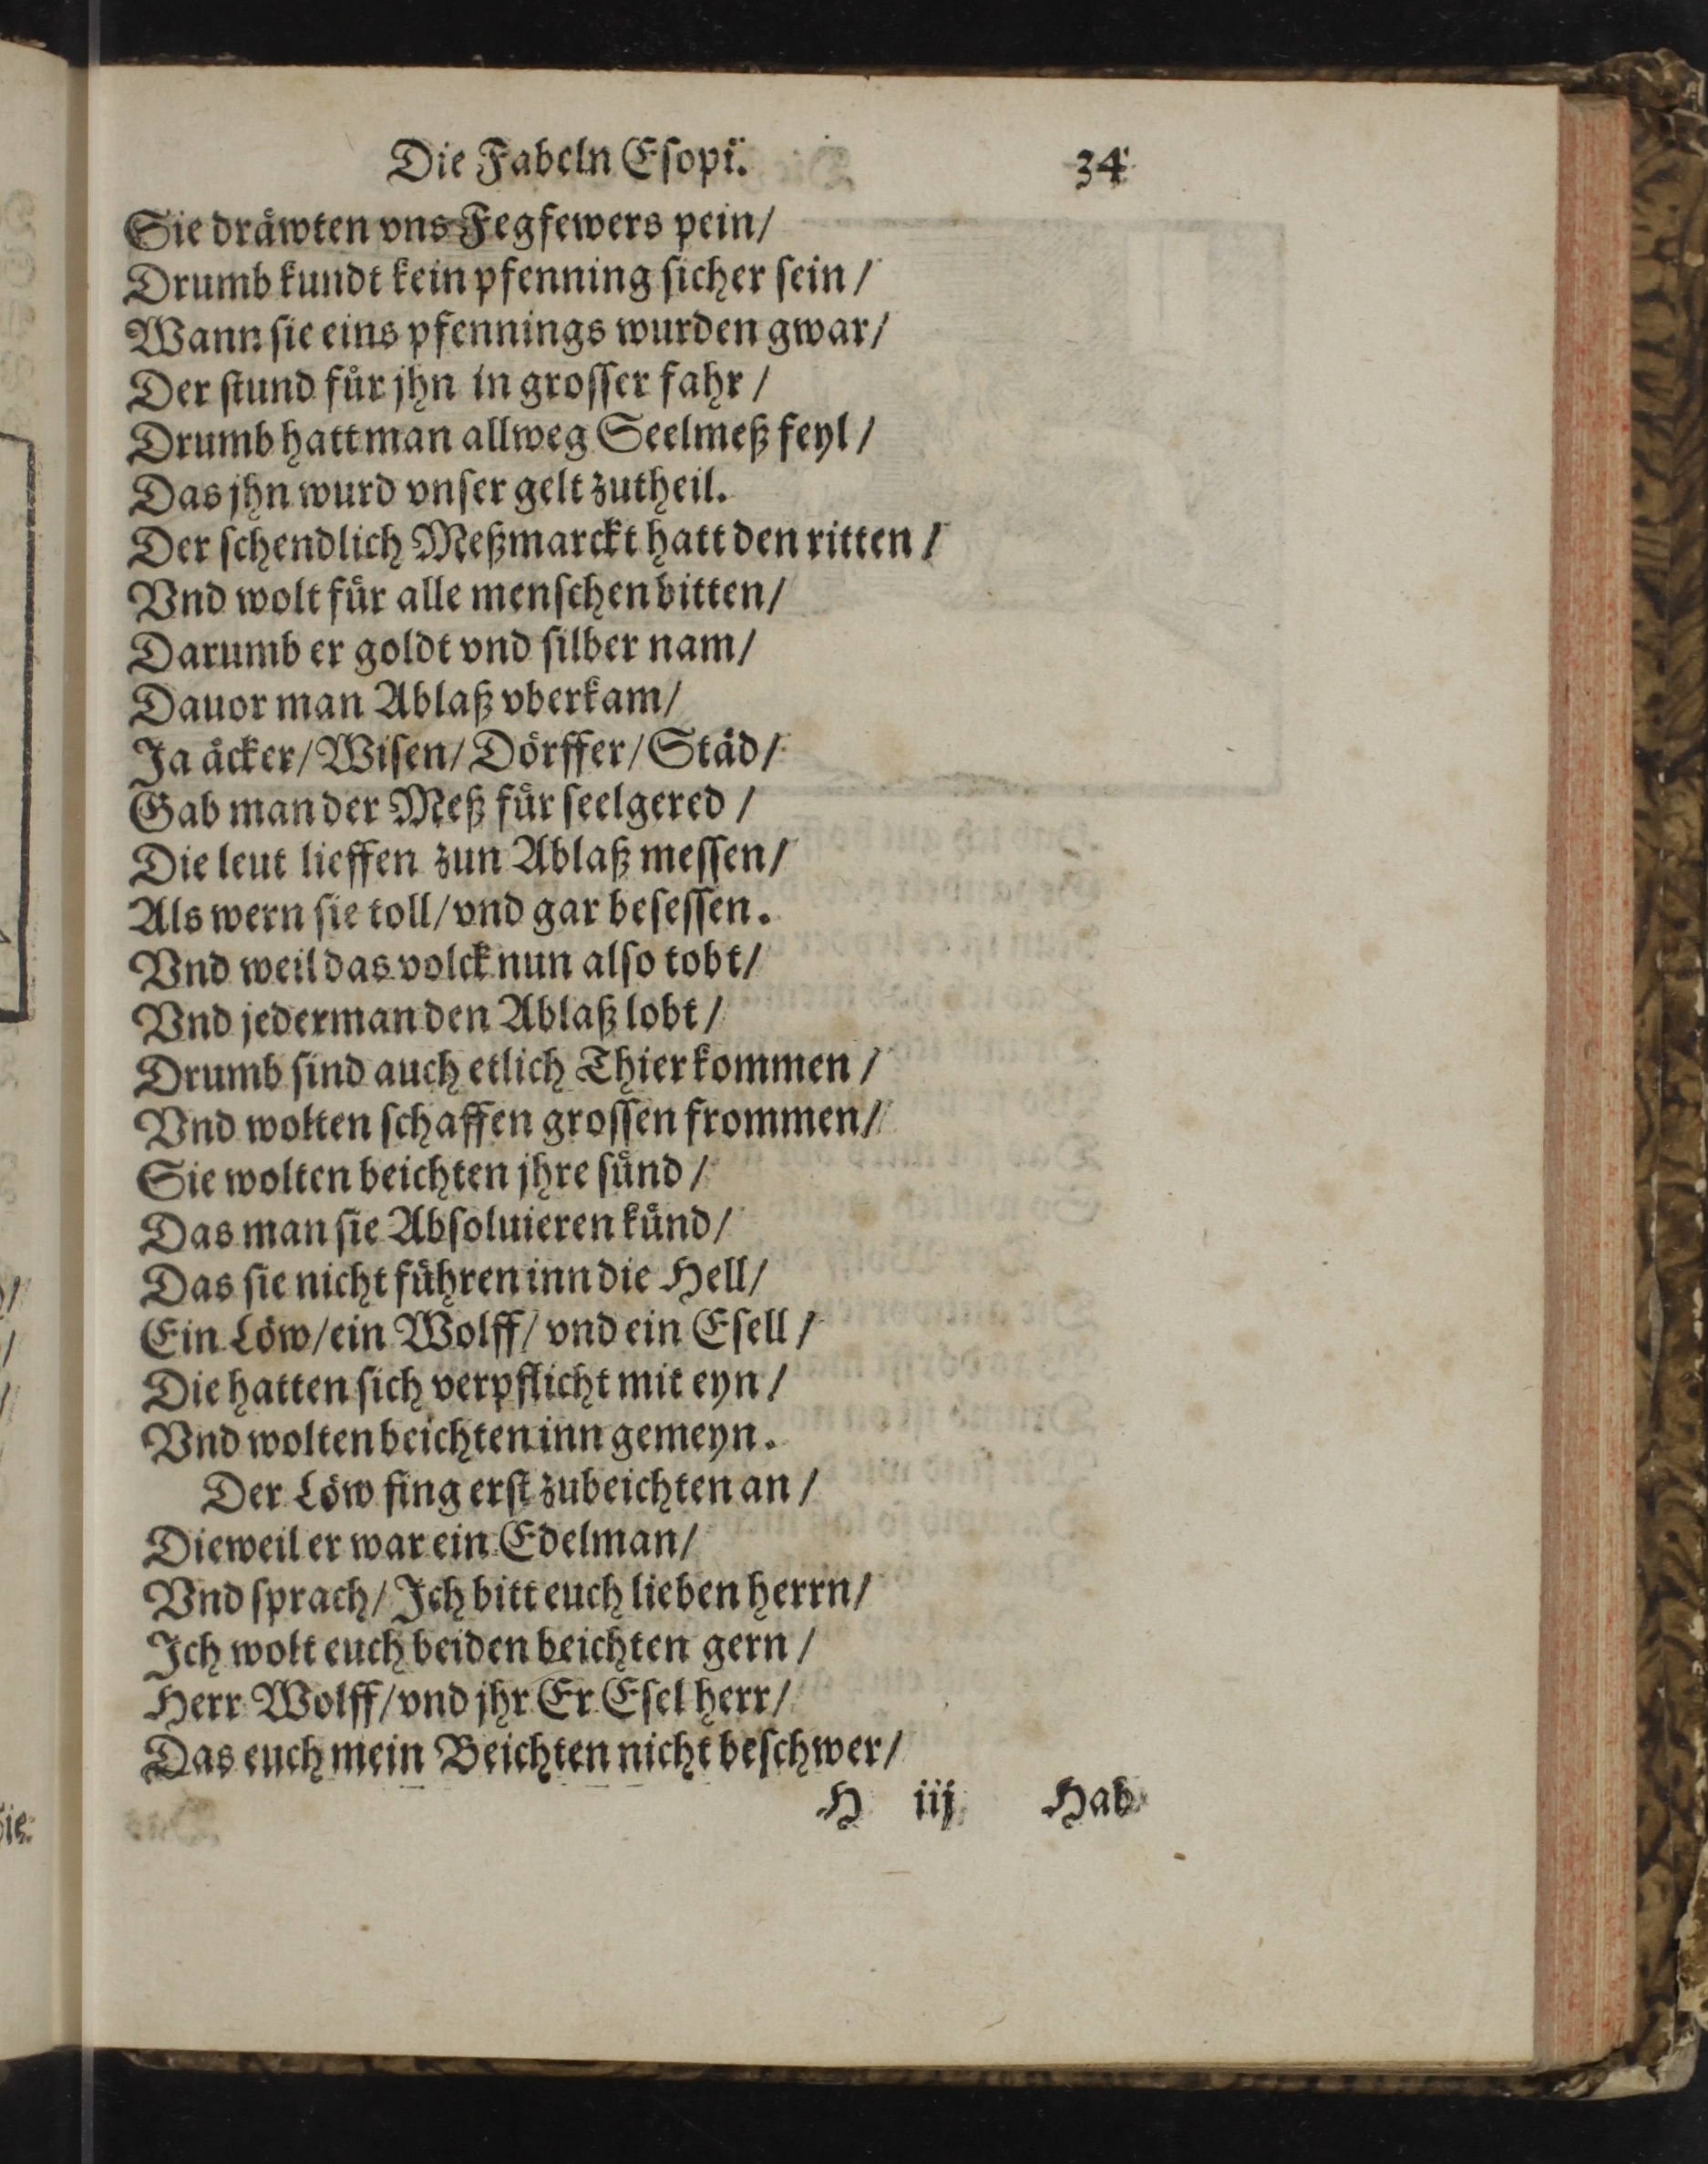 Die Fabeln Eſopi. 34
Sie draͤwten vns Fegfewers pein/
Drumb kundt kein pfenning ſicher ſein/
Wann ſie eins pfennings wurden gwar/
Der ſtund fuͤr jhn in groſſer fahr/
Drumb hatt man allweg Seelmeß feyl/
Das jhn wurd vnſer gelt zutheil.
Der ſchendlich Meßmarckt hatt den ritten/
Vnd wolt fuͤr alle menſchen bitten/
Darumb er goldt vnd ſilber nam/
Dauor man Ablaß vberkam/
Ja aͤcker/ Wiſen/ Doͤrffer/ Staͤd/
Gab man der Meß fuͤr ſeelgered/
Die leut lieffen zun Ablaß meſſen/
Als wern ſie toll/ vnd gar beſeſſen.
Vnd weil das volck nun alſo tobt/
Vnd jederman den Ablaß lobt/
Drumb ſind auch etlich Thier kommen/
Vnd wolten ſchaffen groſſen frommen/
Sie wolten beichten jhre ſuͤnd/
Das man ſie Abſoluieren kuͤnd/
Das ſie nicht fuͤhren inn die Hell/
Ein Loͤw/ ein Wolff/ vnd ein Eſell/
Die hatten ſich verpflicht mit eyn/
Vnd wolten beichten inn gemeyn.
Der Loͤw fing erſt zubeichten an/
Dieweil er war ein Edelman/
Vnd ſprach/ Jch bitt euch lieben herrn/
Jch wolt euch beiden beichten gern/
Herr Wolff/ vnd jhr Er Eſel herr/
Das euch mein Beichten nicht beſchwer/
H iij Hab